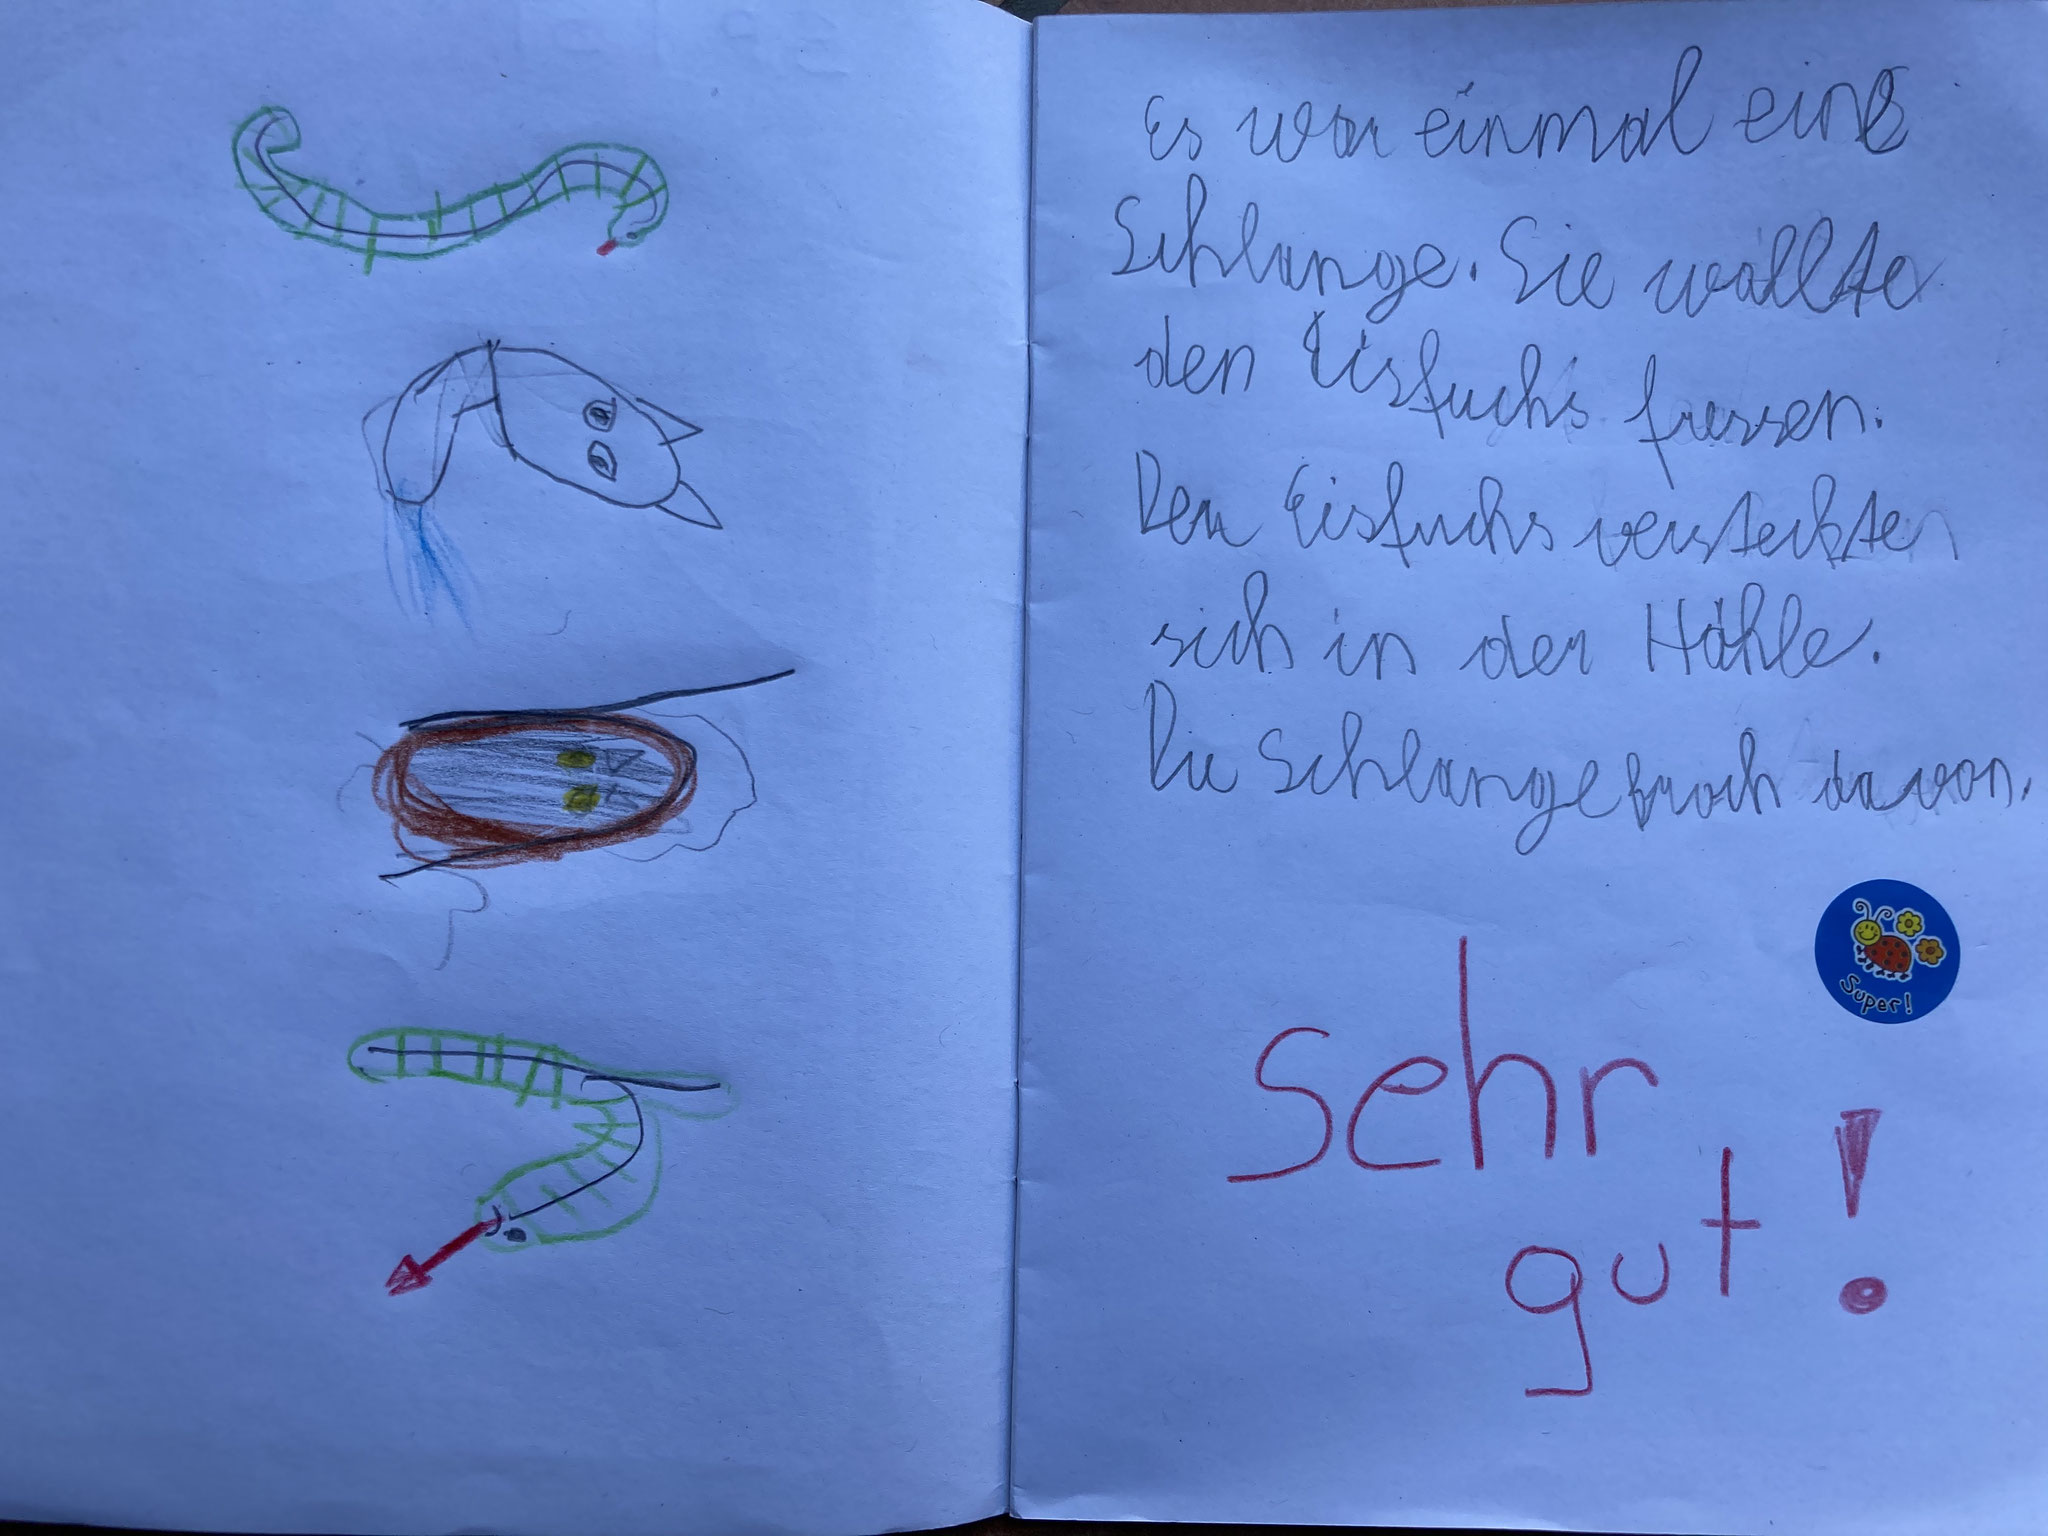 Es war einmal eine
Schlange. Sie wollte
den Eisfuchs fressen.
Der Eisfuchs versteckte
sich in der Höhle.
Die Schlange kroch davon.
Super!
sehr
gut!